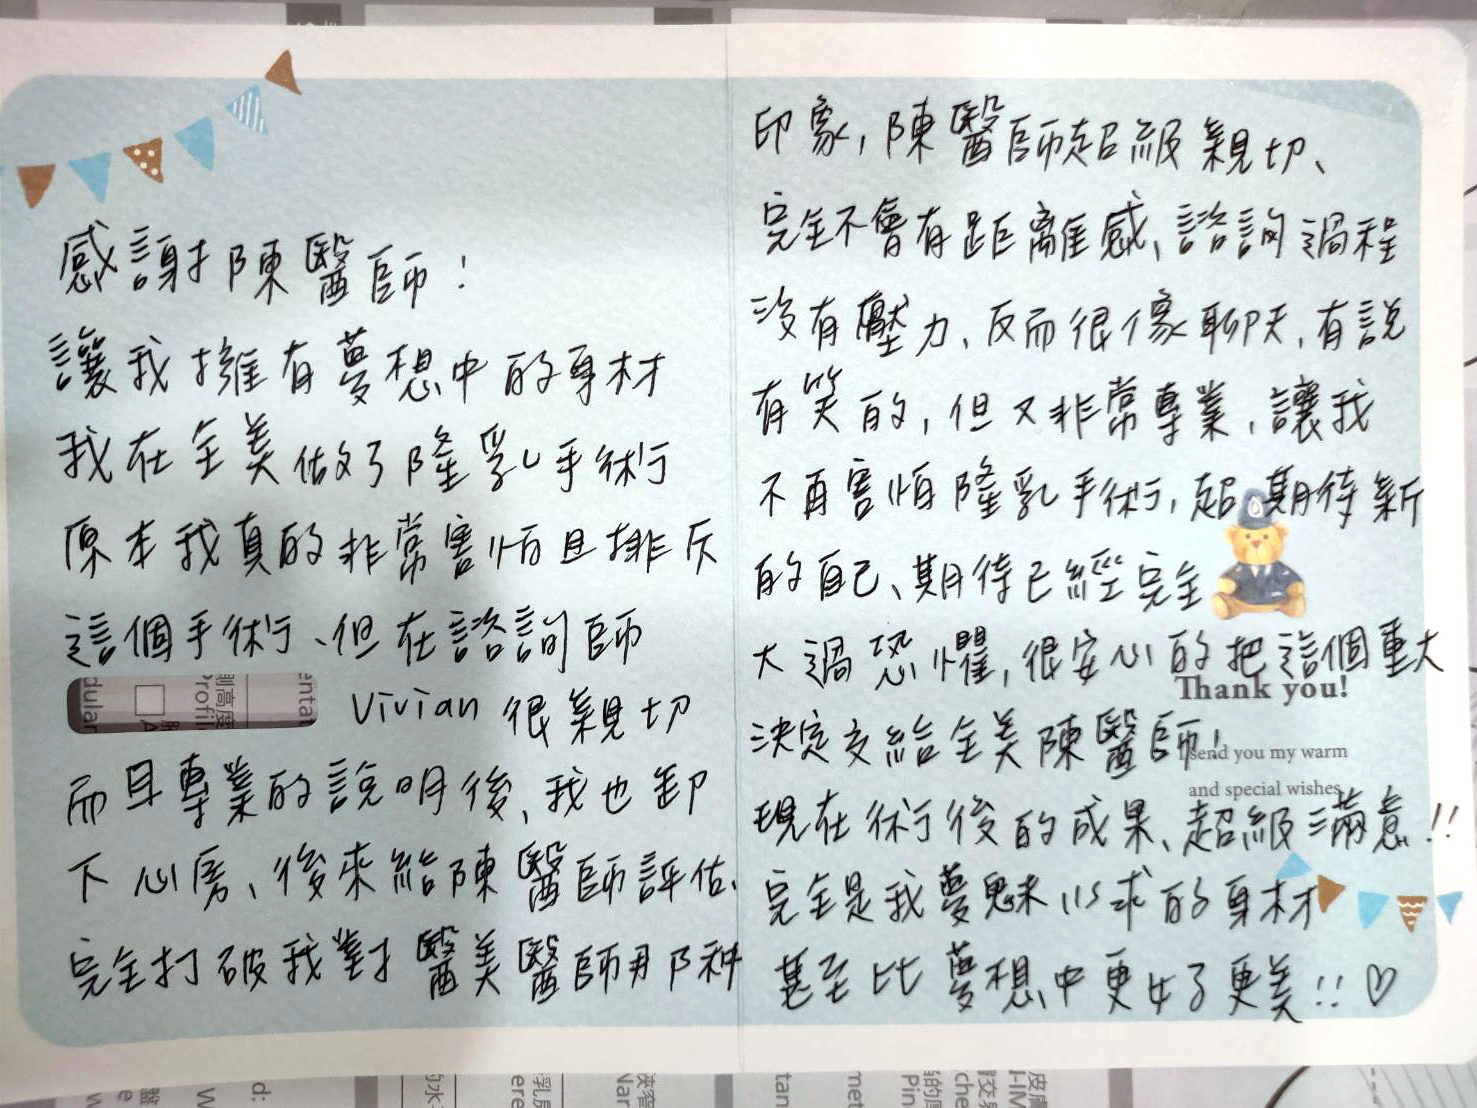 感謝陳醫師!
讓我擁有夢想中的身材
我在全美做了隆乳手術
原本我真的非常害怕且排斥
這個手術、但在諮詢師
Vivian 很親切
而且專業的說明後,我也卸
下心房、後來給陳醫師評估、
完全打破我對醫美醫師那種
印象,陳醫師超級親切、
完全不會有距離感、諮詢過程
沒有壓力、反而很像聊天,有說
有笑的,但又非常專業,讓我
不再害怕隆乳手術,超期待新
的自己、期待已經完全
大過恐懼,很安心的把這個重大
決定交給全美陳醫師!
現在術後的成果、超級滿意!!
完全是我夢魅以求的身材
甚至比夢想中更好了更美!!♡
Thank you!
send you my warm
and special wishes